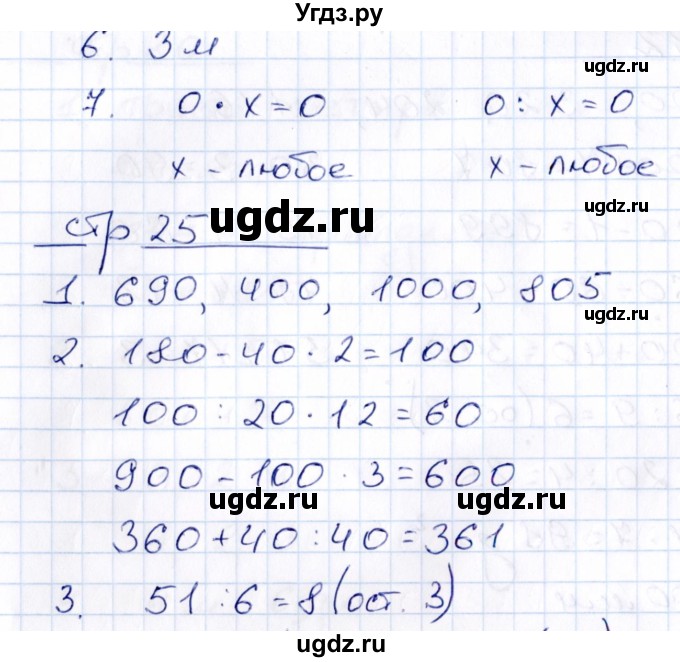 Угдз.ру
6. 3 м
ugdz.ru
7. 0 · x = 0    0 : x = 0
ugdz.ru
x - любое    x - любое
ugdz.ru
стр 25
ugdz.ru
1. 690, 400, 1000, 805
ugdz.ru
2. 180 - 40 · 2 = 100
100 : 20 · 12 = 60
900 - 100 · 3 = 600
ugdz.ru    ugdz.ru
360 + 40 : 40 = 361
3. 51 : 6 = 8 (ост. 3)
ugdz.ru